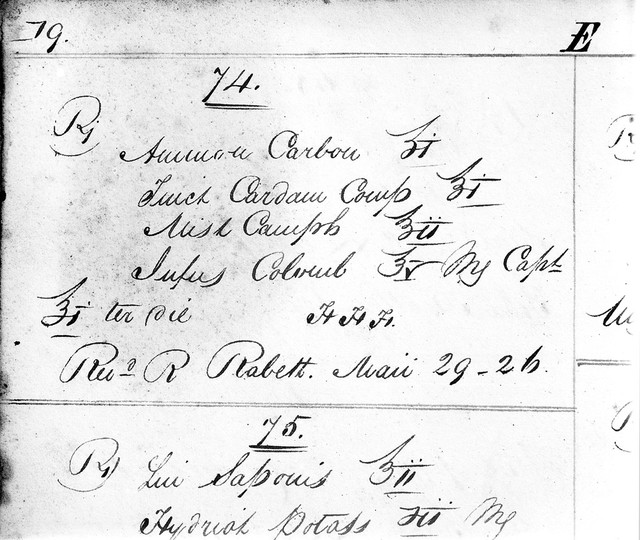 79. E
74.
R
Ammon Carbon ʒi
Tinct Cardam Comp ʒi
Mist Camph ʒii
Infus Colomb ʒv Mg Capt
ʒi ter die H H H.
Revd R Rabett. Maii 29 - 26.
75.
R Lin Saponis ʒii
Hydriot Potass ʒii Mg